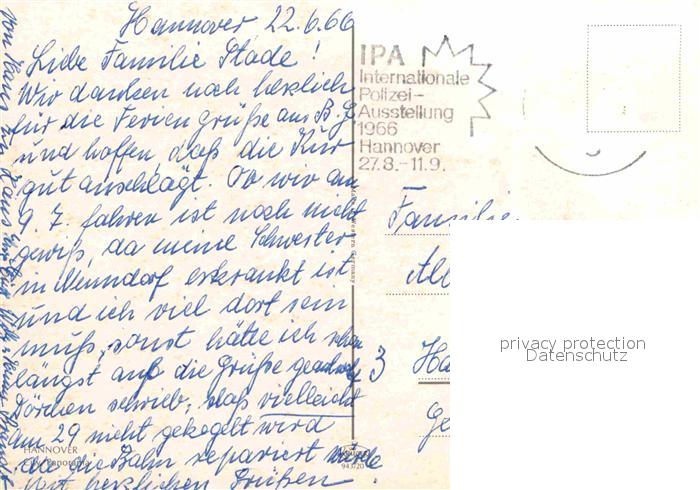 Hannover 22.6.66
Liebe Familie Stade!
Wir danken noch herzlich
für die Feriengrüße aus B. G.
und hoffen, daß die Kur
gut anschlägt. Ob wir am
9. 7. fahren ist noch nicht
gewiß, da meine Schwester
in Nenndorf erkrankt ist
und ich viel dort sein
muß, sonst hätte ich schon
längst auf die Grüße geantw.
Dörchen schrieb, daß vielleicht
am 29 nicht gekegelt wird
da die Bahn repariert würde.
Mit herzlichen Grüßen
von Haus zu Haus
HANNOVER
Panorama
943/20
Western Germany
IPA
Internationale
Polizei-
Ausstellung
1966
Hannover
27.8.-11.9.
Familie
3 Ha
privacy protection
Datenschutz